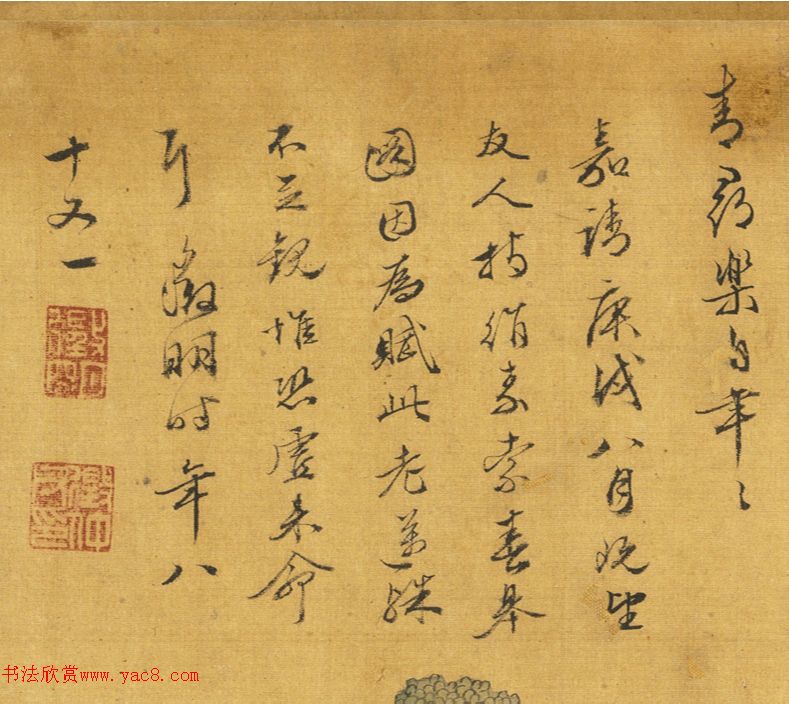 青尋樂自年〻
嘉靖庚戌八月既望
友人持絹素索春舉
圖因為賦此老邁殊
不足觀惟恐虛來命
耳徵明时年八
十又一
书法欣赏www.yac8.com